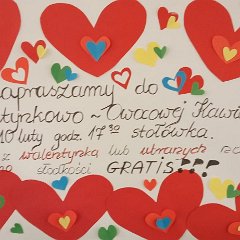 apraszamy do
tynkowo - Owocowej Kawia
10 luty godz. 17 30 stołówka.
z walentynką lub ubranych
słodkości GRATIS???